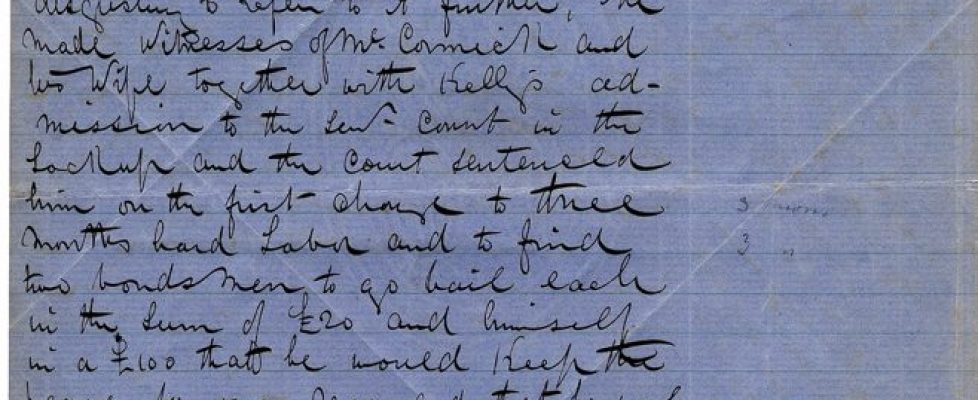 disgusting to refer to it further, He
made Witnesses of Mc Cormick and
his Wife together with Kelly's ad-
mission to the Senr Const in the
Lockup and the Court sentenced
him on the first charge to three
3 mons
months hard Labor and to find
3 "
two bondsmen to go bail each
in the Sum of £20 and himself
in a £100 that he would Keep the